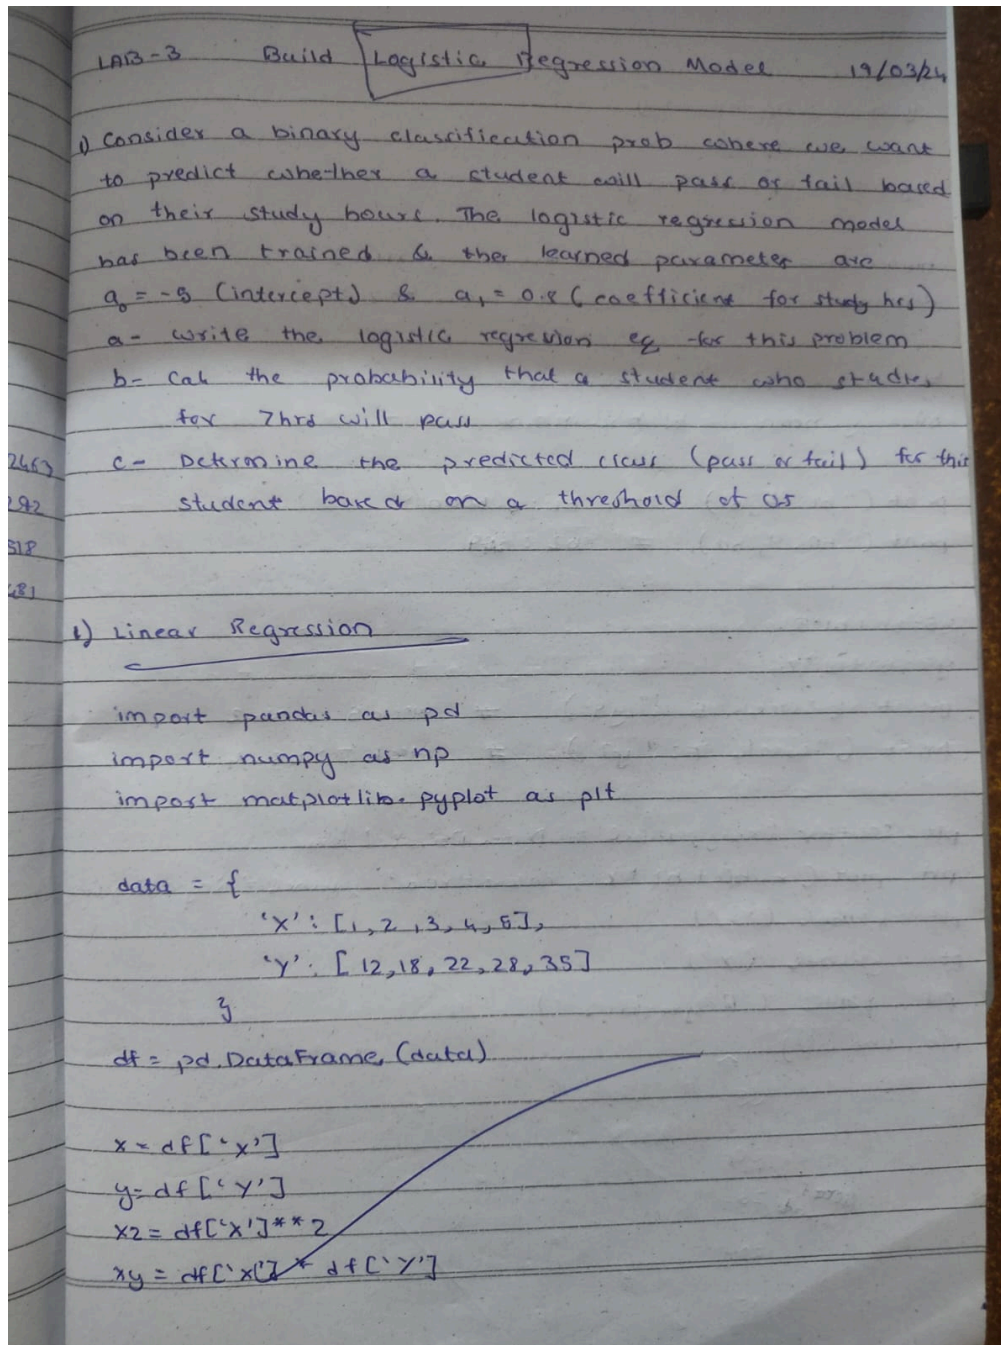 LAB-3 Build Logistic Regression Model 19/03/24
1) Consider a binary classification prob where we want
to predict whether a student will pass or fail based
on their study hours. The logistic regression model
has been trained & the learned parameter are
a0 = -5 (intercept) & a1 = 0.8 (coefficient for study hrs)
a- write the logistic regression eq for this problem
b- Cal the probability that a student who studies
for 7hrs will pass
c- Determine the predicted class (pass or fail) for this
student based on a threshold of 0.5
1) Linear Regression
import pandas as pd
import numpy as np
import matplotlib.pyplot as plt
data = {
'X': [1, 2, 3, 4, 5],
'Y': [12, 18, 22, 28, 35]
}
df = pd.DataFrame(data)
x = df['X']
y = df['Y']
x2 = df['X']**2
xy = df['X'] * df['Y']